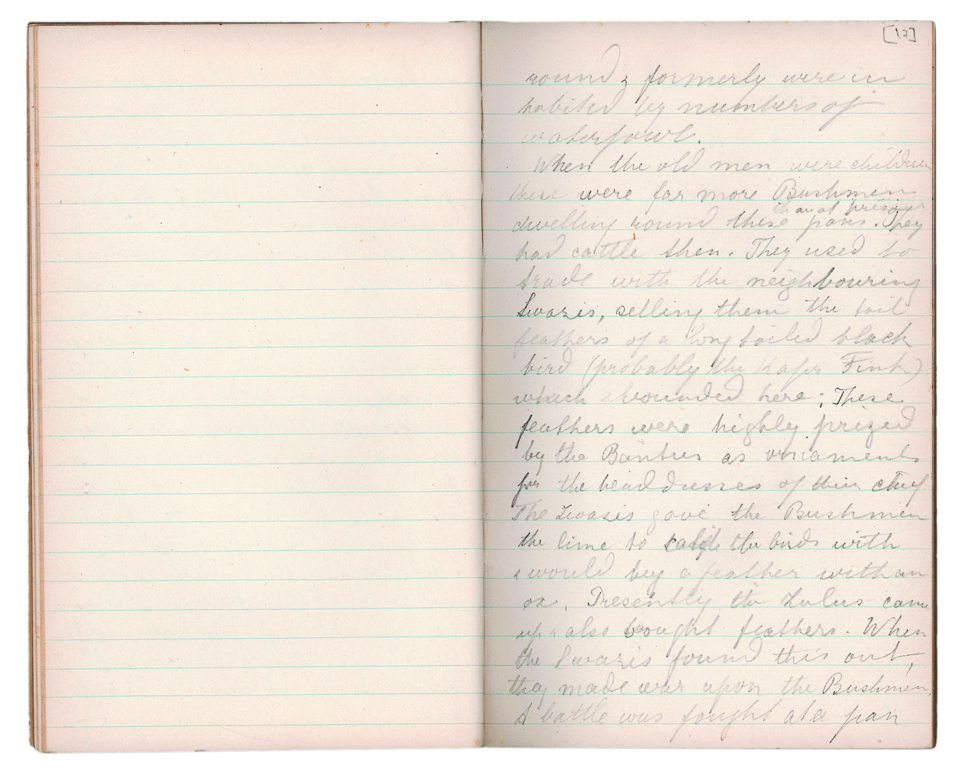 [17]
round & formerly were in
habited by numbers of
waterfowl.
When the old men were children
there were far more Bushmen
than at present
dwelling round these pans. They
had cattle then. They used to
trade with the neighbouring
Swazis, selling them the tail
feathers of a long tailed black
bird (probably the Kafir Fink)
which abounded here; These
feathers were highly prized
by the Bantus as ornaments
for the headdresses of their chief
The Swazis gave the Bushmen
the lime to catch the birds with
& would buy a feather with an
ox. Presently the Zulus came
up & also bought feathers. When
the Swazis found this out,
they made war upon the Bushmen.
A battle was fought at a pan